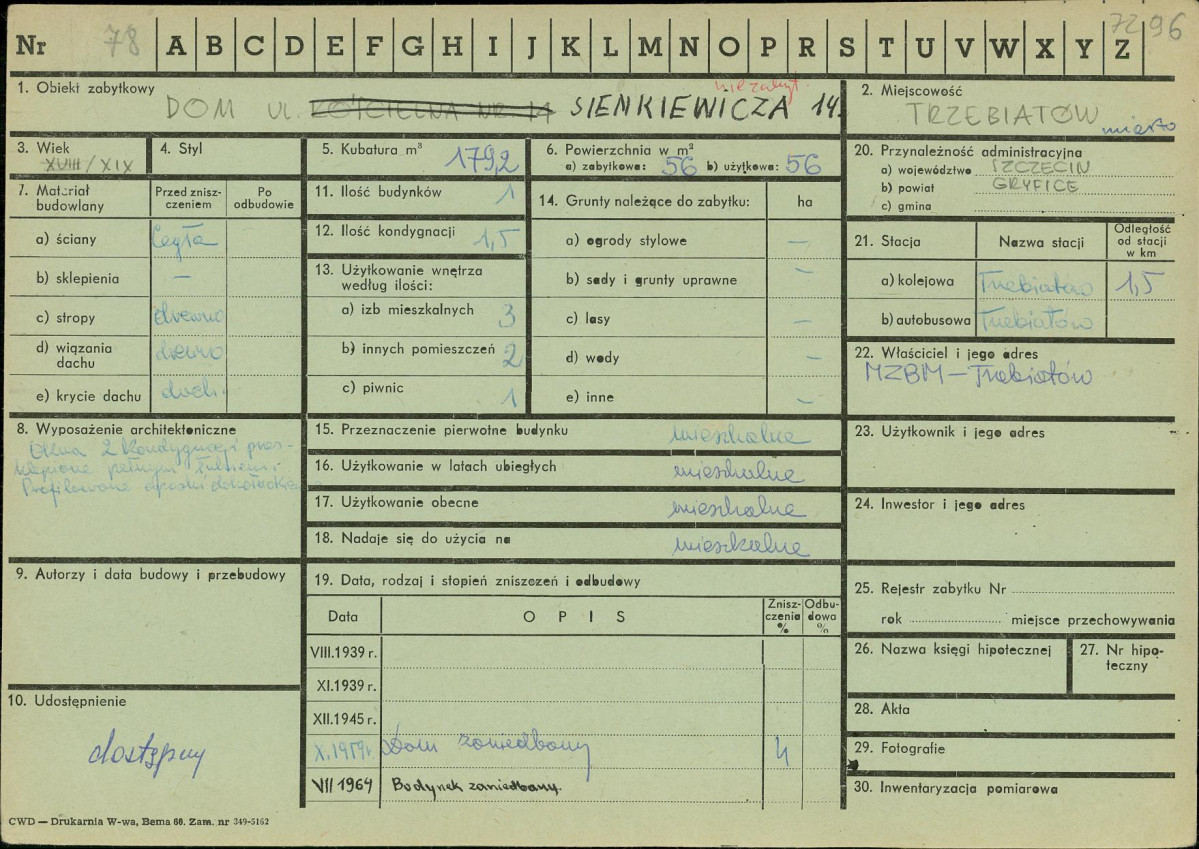 Nr 78 A B C D E F G H I J K L M N O P R S T U V W X Y Z 7296
1. Obiekt zabytkowy
DOM UL. KOŚCIELNA NR 14 SIENKIEWICZA 14.
2. Miejscowość
TRZEBIATÓW
miasto
3. Wiek
XVIII/XIX
4. Styl
5. Kubatura m³ 179,2
6. Powierzchnia w m²
a) zabytkowa: 56 b) użytkowa: 56
20. Przynależność administracyjna
a) województwo SZCZECIN
b) powiat GRYFICE
c) gmina
7. Materiał budowlany
Przed zniszczeniem
Po odbudowie
a) ściany cegła
b) sklepienia —
c) stropy drewno
d) wiązania dachu drewno
e) krycie dachu dach.
11. Ilość budynków 1
12. Ilość kondygnacji 1,5
13. Użytkowanie wnętrza
według ilości:
a) izb mieszkalnych 3
b) innych pomieszczeń 2
c) piwnic 1
14. Grunty należące do zabytku: ha
a) ogrody stylowe —
b) sady i grunty uprawne —
c) lasy —
d) wody —
e) inne —
21. Stacja
Nazwa stacji
Odległość od stacji w km
a) kolejowa Trzebiatów 1,5
b) autobusowa Trzebiatów
22. Właściciel i jego adres
MZBM — Trzebiatów
8. Wyposażenie architektoniczne
Okna 2 kondygnacji prze-
sklepione pełnym łukiem i
Profilowane
15. Przeznaczenie pierwotne budynku mieszkalne
16. Użytkowanie w latach ubiegłych mieszkalne
17. Użytkowanie obecne mieszkalne
18. Nadaje się do użycia na mieszkalne
23. Użytkownik i jego adres
24. Inwestor i jego adres
9. Autorzy i data budowy i przebudowy
19. Data, rodzaj i stopień zniszczeń i odbudowy
Data
OPIS
Zniszczenia %
Odbudowa %
VIII.1939 r.
XI.1939 r.
XII.1945 r.
X.1959r. Dom zaniedbany 4
VII 1964 Budynek zaniedbany.
25. Rejestr zabytku Nr
rok miejsce przechowywania
26. Nazwa księgi hipotecznej
27. Nr hipo-
teczny
28. Akta
29. Fotografie
30. Inwentaryzacja pomiarowa
10. Udostępnienie
dostępny
CWD — Drukarnia W-wa, Bema 60. Zam. nr 349-5162